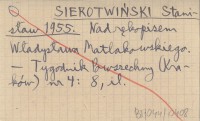 SIEROTWIŃSKI Stani-
sław 1955. Nad rękopisem
Władysława Matlakowskiego.
— Tygodnik Powszechny (Kra-
ków) nr 4: 8, il.